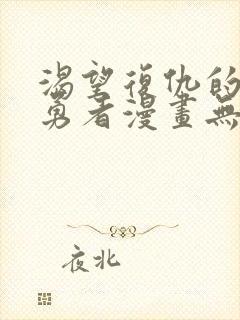 渴望復仇的
勇者漫畫無
夜北